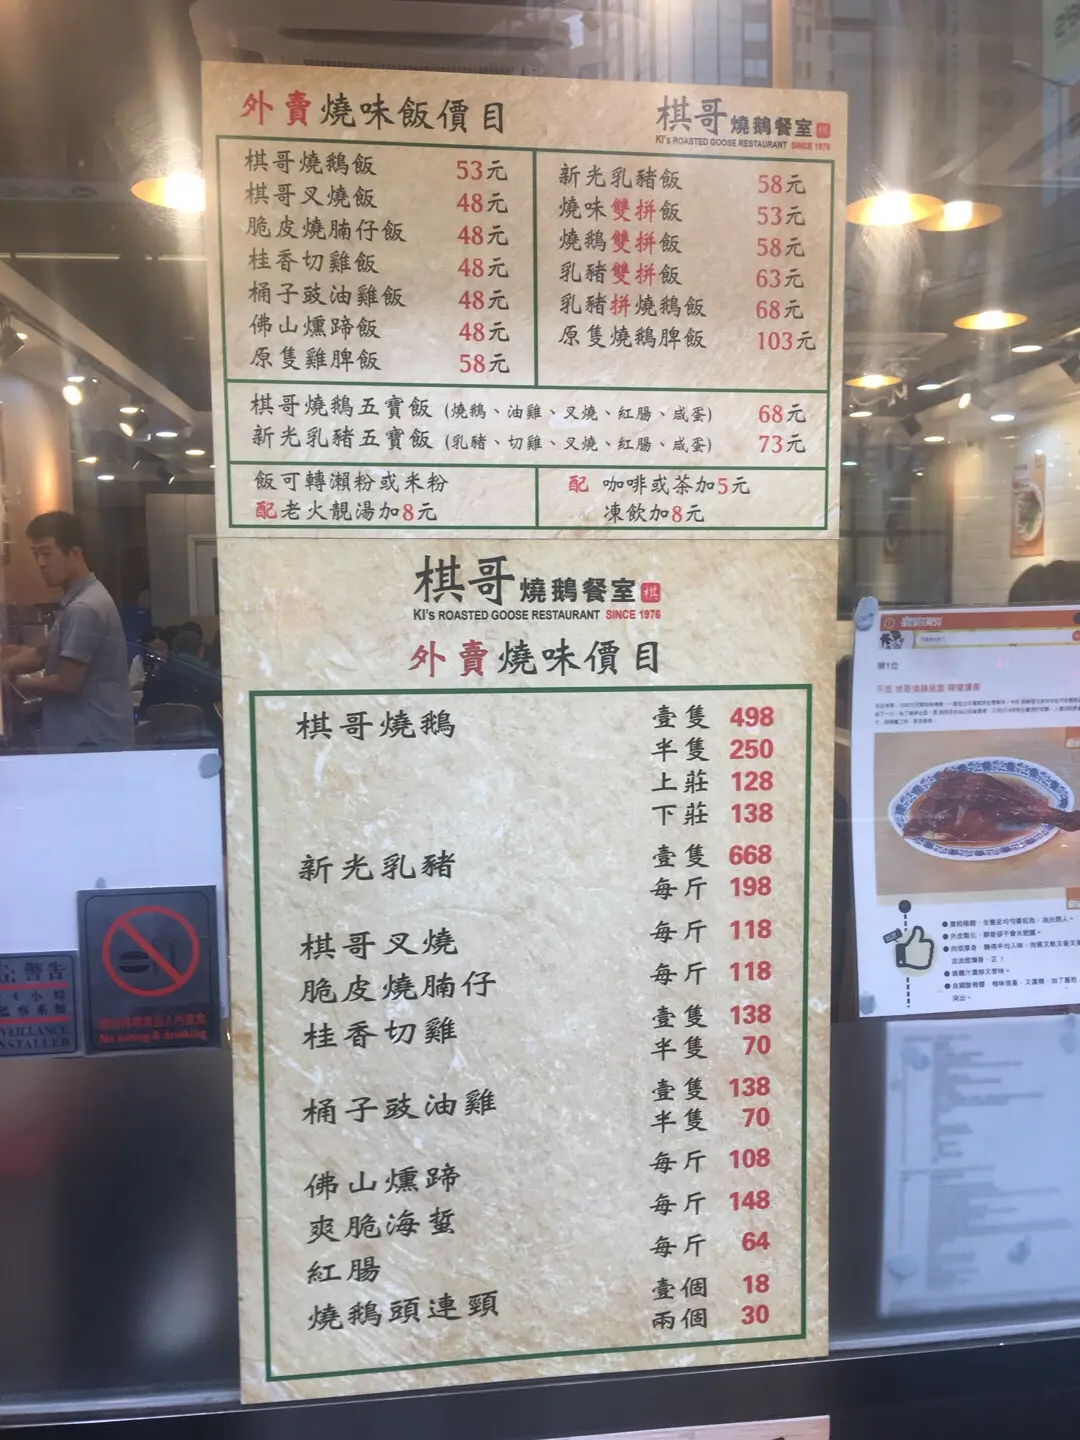 外賣燒味飯價目
棋哥燒鵝餐室 棋
KI's ROASTED GOOSE RESTAURANT SINCE 1976
棋哥燒鵝飯 53元
棋哥叉燒飯 48元
脆皮燒腩仔飯 48元
桂香切雞飯 48元
桶子豉油雞飯 48元
佛山燻蹄飯 48元
原隻雞脾飯 58元
新光乳豬飯 58元
燒味雙拼飯 53元
燒鵝雙拼飯 58元
乳豬雙拼飯 63元
乳豬拼燒鵝飯 68元
原隻燒鵝脾飯 103元
棋哥燒鵝五寶飯 (燒鵝、油雞、叉燒、紅腸、咸蛋) 68元
新光乳豬五寶飯 (乳豬、切雞、叉燒、紅腸、咸蛋) 73元
飯可轉瀨粉或米粉
配老火靚湯加8元
配 咖啡或茶加5元
凍飲加8元
棋哥燒鵝餐室 棋
KI's ROASTED GOOSE RESTAURANT SINCE 1976
外賣燒味價目
棋哥燒鵝 壹隻 498
半隻 250
上莊 128
下莊 138
新光乳豬 壹隻 668
每斤 198
棋哥叉燒 每斤 118
脆皮燒腩仔 每斤 118
桂香切雞 壹隻 138
半隻 70
桶子豉油雞 壹隻 138
半隻 70
佛山燻蹄 每斤 108
爽脆海蜇 每斤 148
紅腸 每斤 64
燒鵝頭連頸 壹個 18
兩個 30
警告
No eating & drinking
第1位